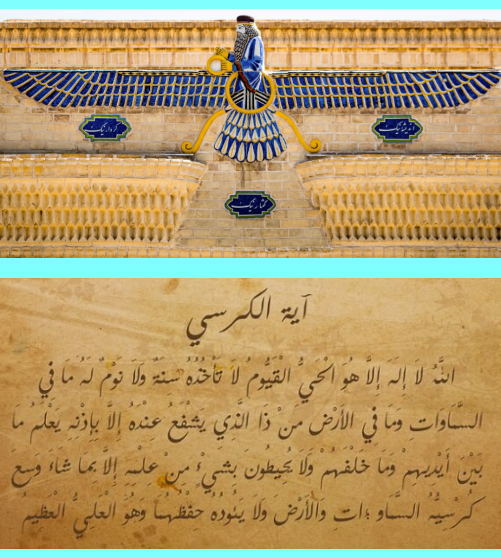 اندیشه نیک
کردار نیک
گفتار نیک
آية الكرسي
اللهُ لَا إِلَهَ إِلاَّ هُوَ الْحَيُّ الْقَيُّومُ لاَ تَأْخُذُهُ سِنَةٌ وَلاَ نَوْمٌ لَهُ مَا فِي
السَّمَاوَاتِ وَمَا فِي الأَرْضِ مَنْ ذَا الَّذِي يَشْفَعُ عِنْدَهُ إِلاَّ بِإِذْنِهِ يَعْلَمُ مَا
بَيْنَ أَيْدِيهِمْ وَمَا خَلْفَهُمْ وَلاَ يُحِيطُونَ بِشَيْءٍ مِنْ عِلْمِهِ إِلاَّ بِمَا شَاءَ وَسِعَ
كُرْسِيُّهُ السَّمَاو ؛اتِ وَالأَرْضَ وَلاَ يَئُودُهُ حِفْظُهُمَا وَهُوَ الْعَلِيُّ الْعَظِيمُ